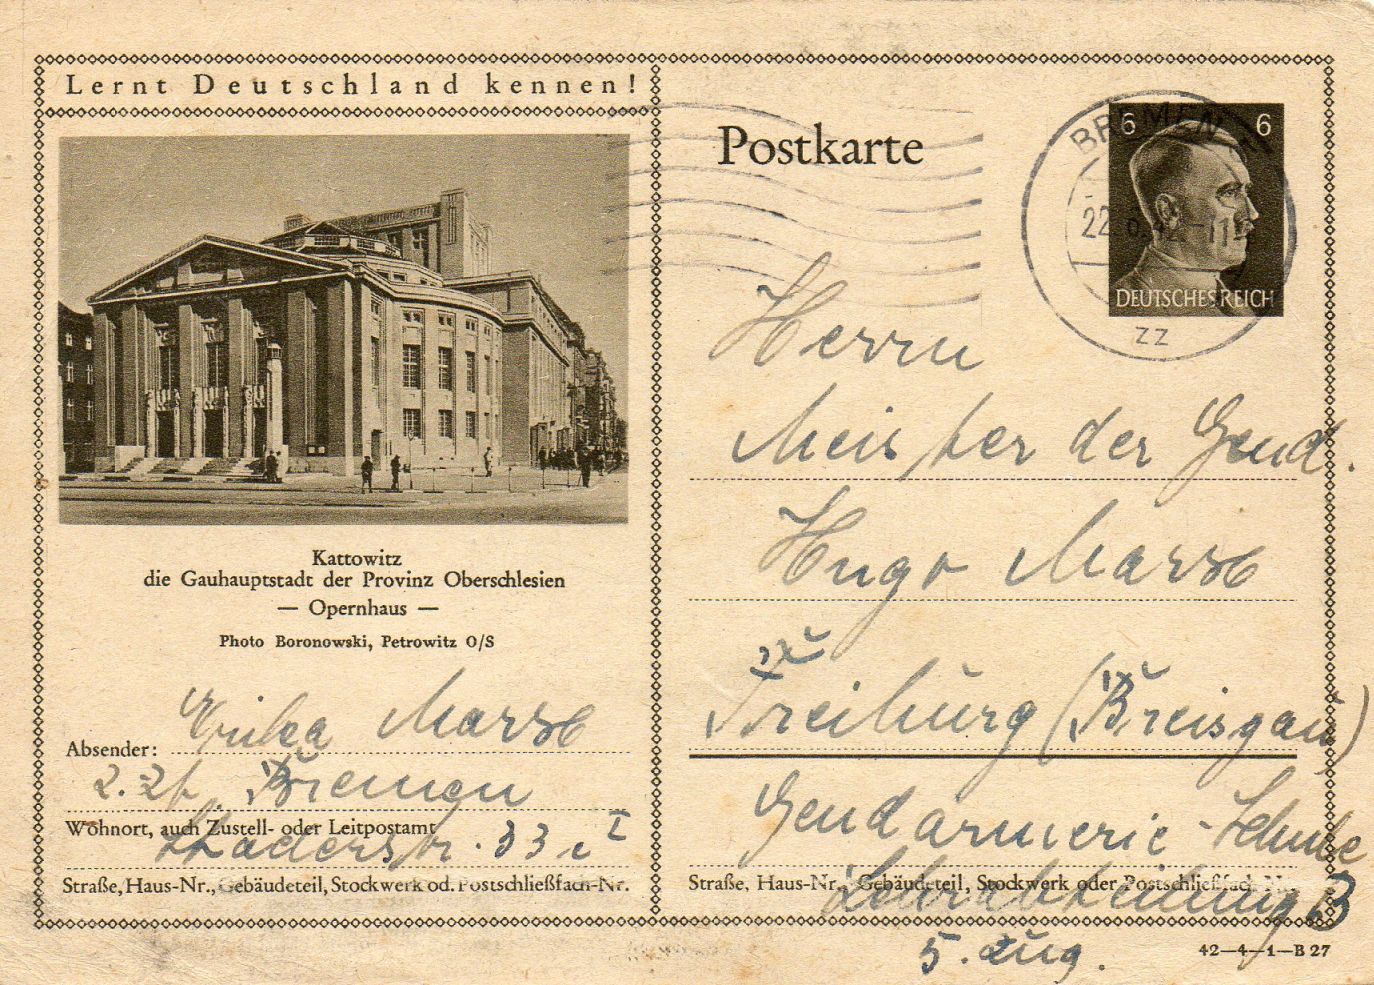 Lernt Deutschland kennen!
Kattowitz
die Gauhauptstadt der Provinz Oberschlesien
— Opernhaus —
Photo Boronowski, Petrowitz O/S
Erika
Absender:
z. Zt. Bremen
Wohnort, auch Zustell- oder Leitpostamt
Staderstr. 33 I
Straße, Haus-Nr., Gebäudeteil, Stockwerk od. Postschließfach-Nr.
Postkarte
BREMEN
22
ZZ
6 6
DEUTSCHES REICH
Herrn
Meister der Gend.
Hugo
Freiburg (Breisgau)
Gendarmerie-Schule
Straße, Haus-Nr., Gebäudeteil, Stockwerk oder Postschließfach-Nr.
Lehrabteilung B
5. Zug.
42—4—1—B 27